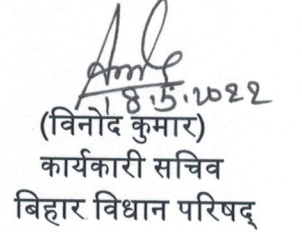 18.5.2022
(विनोद कुमार)
कार्यकारी सचिव
बिहार विधान परिषद्